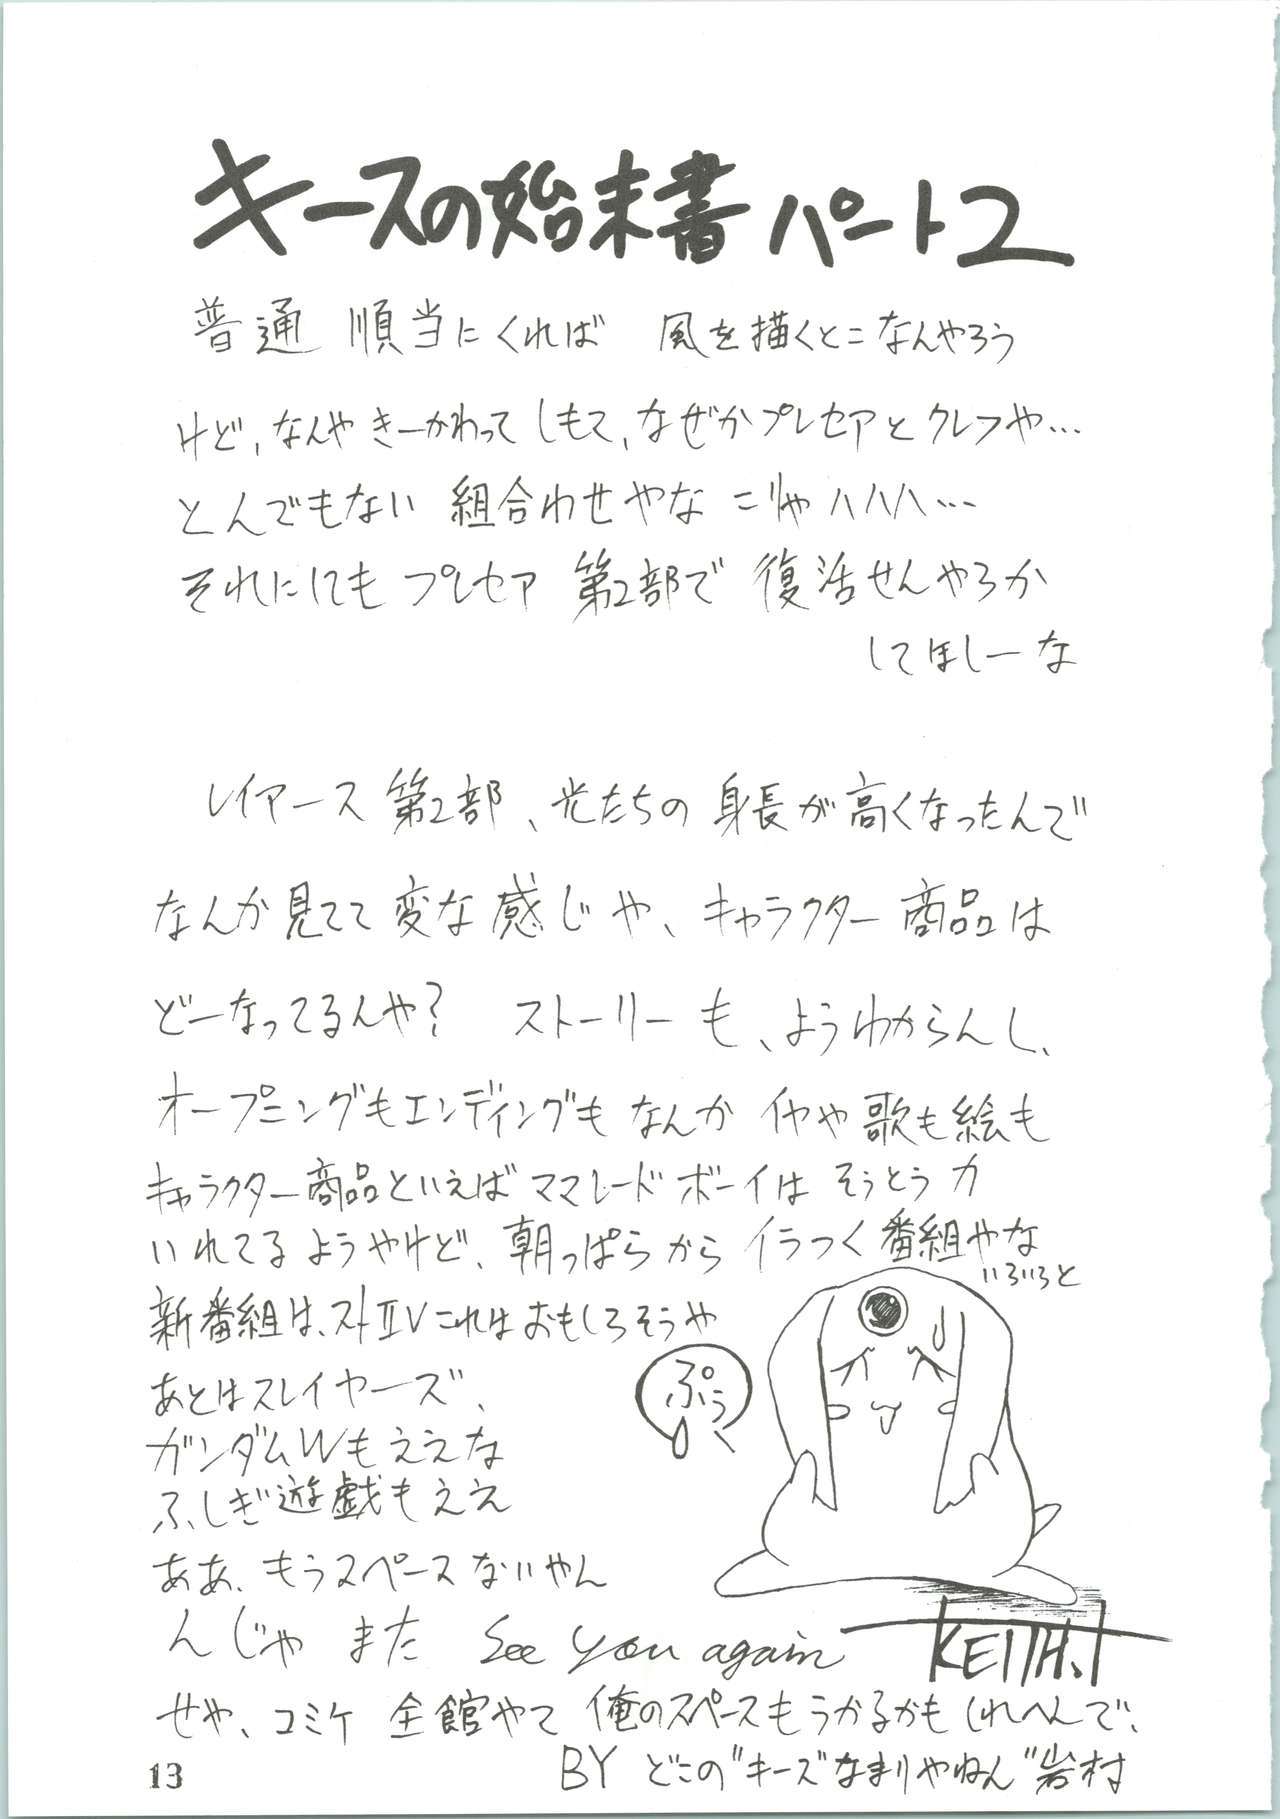 キースの始末書 パート2
普通 順当にくれば 風を描くとこなんやろう
けど、なんや きーかわって しもて、なぜかプレセアとクレフや…
とんでもない 組合わせやな こりゃハハハ…
それにしても プレセア 第2部で 復活せんやろか
してほしーな
レイアース 第2部、光たちの 身長が高くなったんで
なんか見てて 変な感じや、キャラクター商品は
どーなってるんや? ストーリーも、ようわからんし、
オープニングもエンディングも なんか イヤや歌も絵も
キャラクター商品といえば ママレードボーイは そうとう力
いれてるようやけど、朝っぱらから イラつく番組やな
いろいろと
新番組は、ストⅡV これはおもしろそうや
あとはスレイヤーズ、
ガンダムWもええな
ふしぎ遊戯もええ
ぷぅ
ああ、もうスペースないやん
んじゃ また See you again
KEITH.I
せや、コミケ 全館やて 俺のスペースもうかるかもしれへんで、
BY どこの"キーズ"なまりやねん"岩村
13